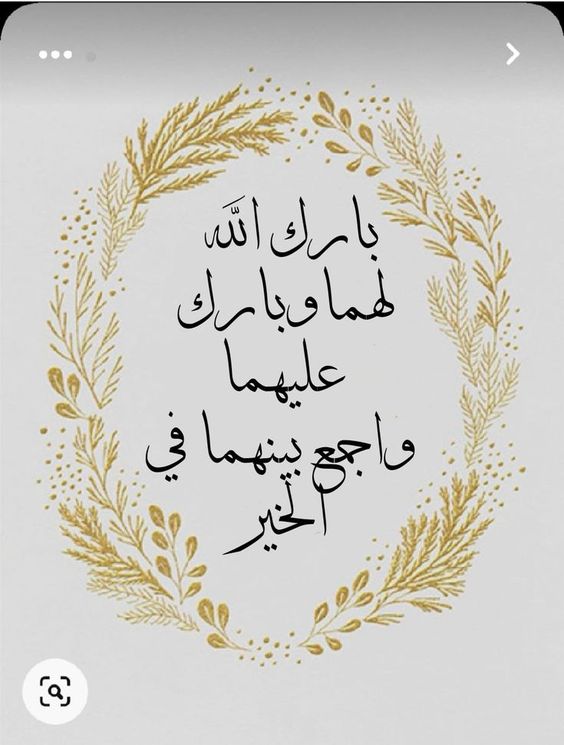 بارك اللَّه
لهما وبارك
عليهما
واجمع بينهما في
الخير